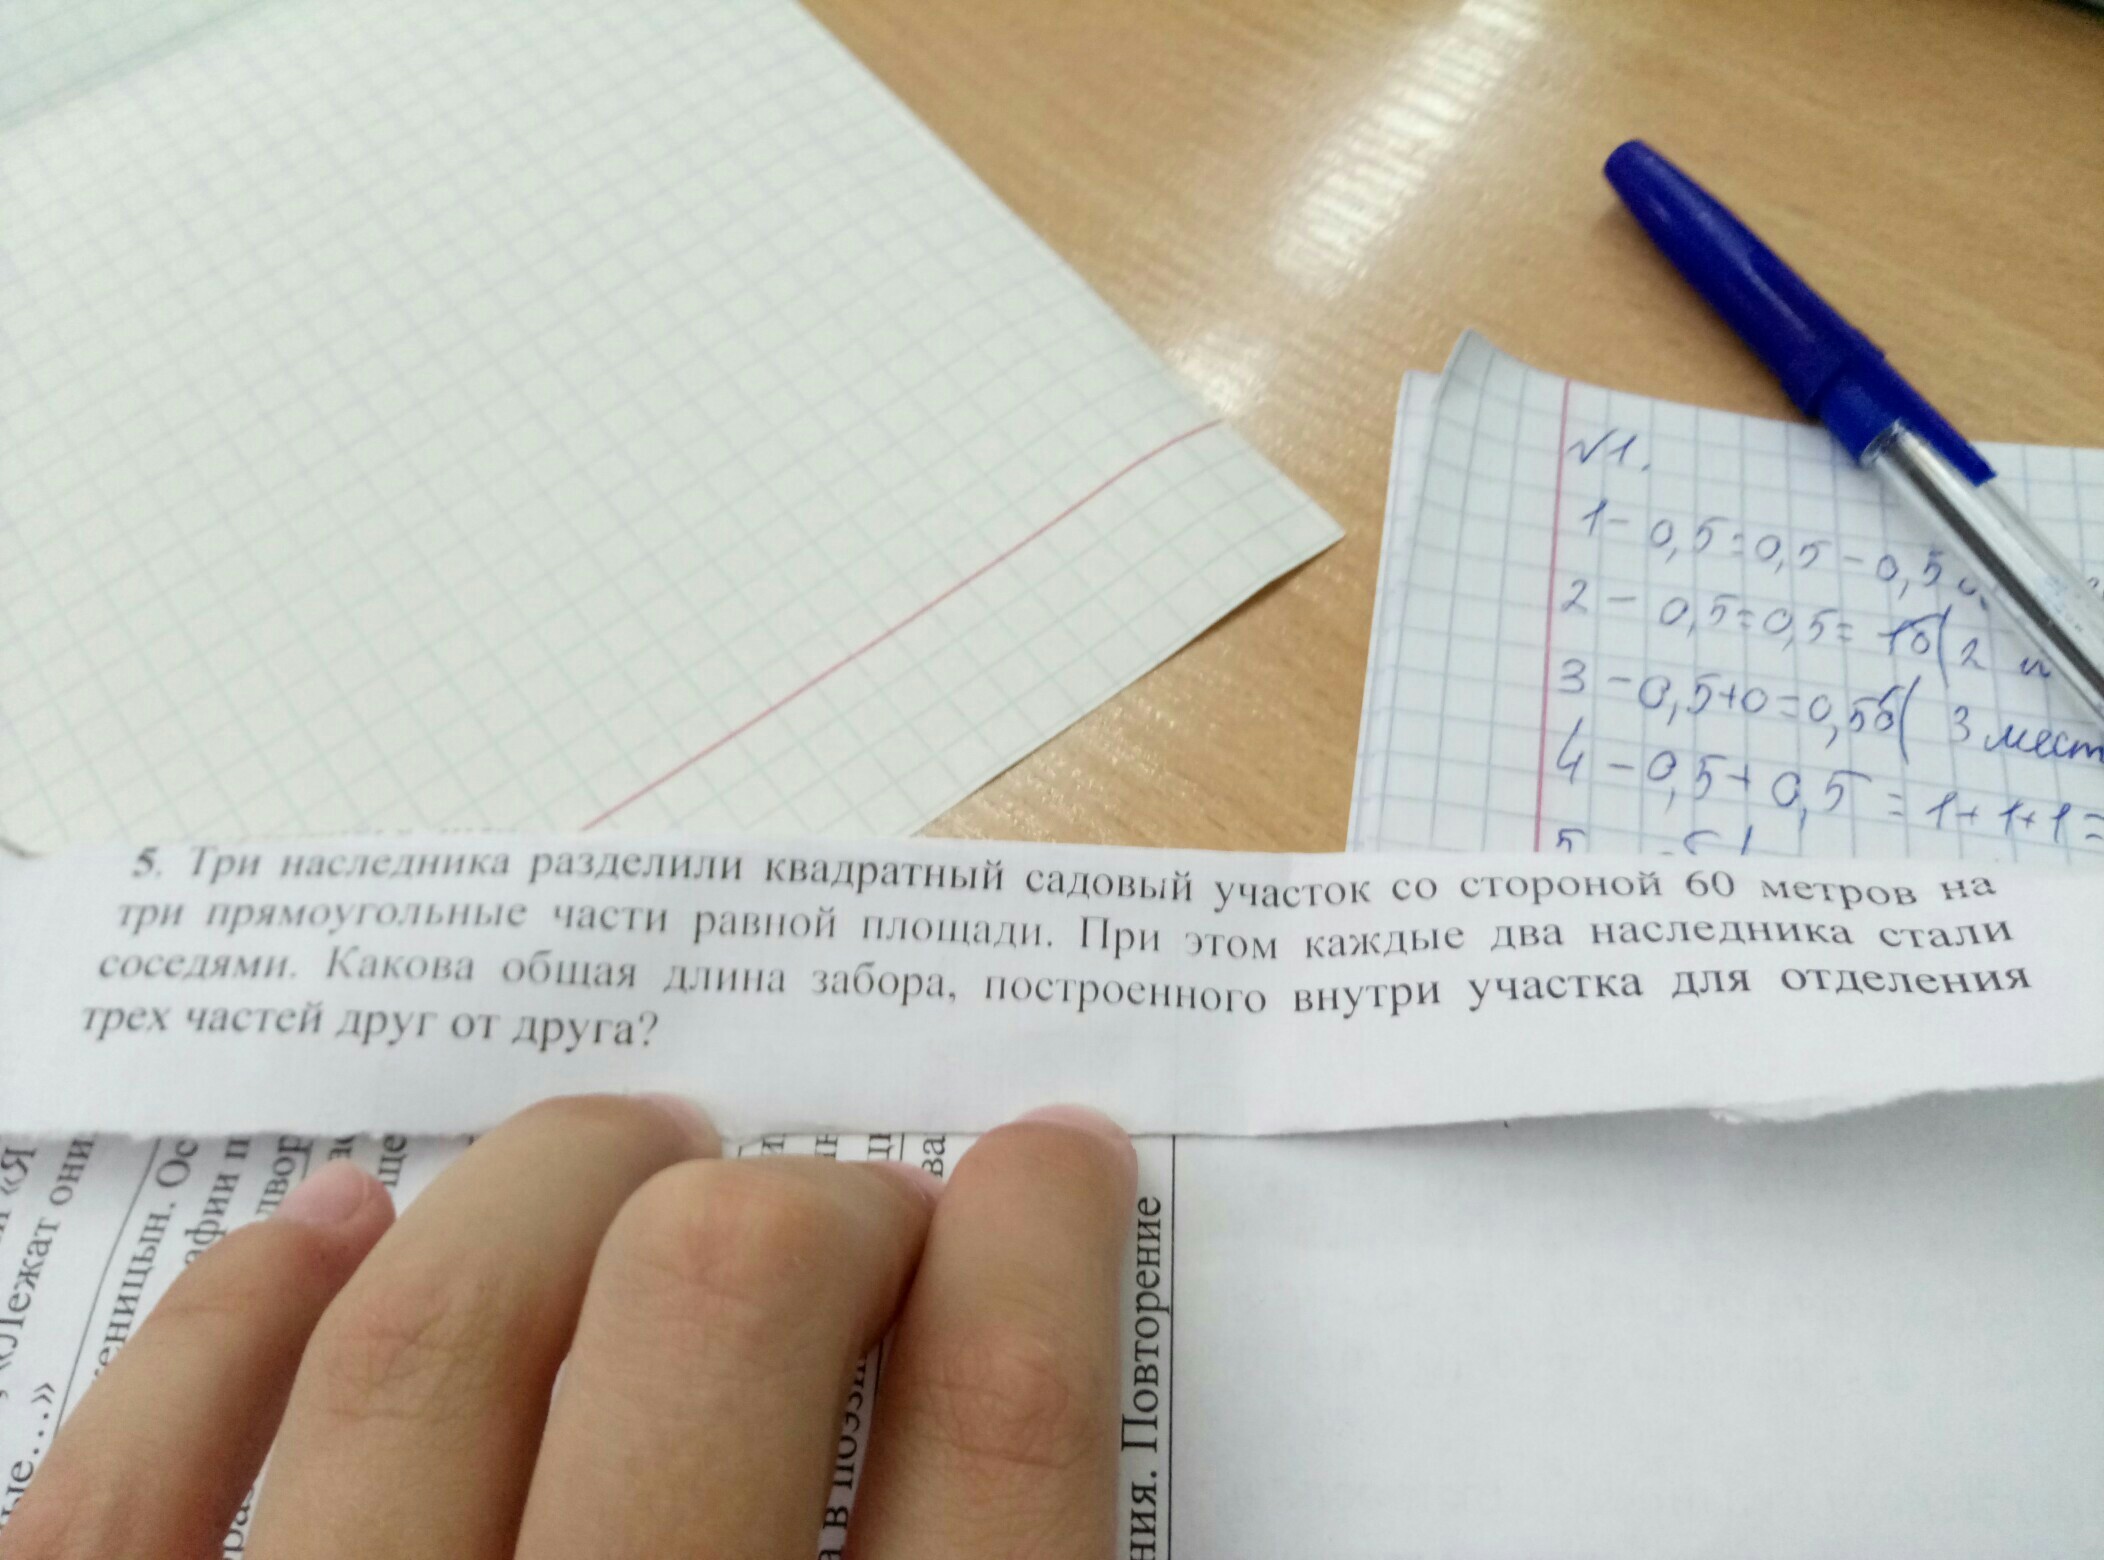 №1.
1 - 0,5 = 0,5 - 0,5
2 - 0,5 = 0,5 = 1б( 2
3 - 0,5 + 0 = 0,5б( 3 мест
4 - 0,5 + 0,5 = 1 + 1 + 1 =
5
5. Три наследника разделили квадратный садовый участок со стороной 60 метров на
три прямоугольные части равной площади. При этом каждые два наследника стали
соседями. Какова общая длина забора, построенного внутри участка для отделения
трех частей друг от друга?
«Я
«Лежат они
ные…»
еницын. Ос
афии п
двор
ще
ва
а в поэзи
ния. Повторение